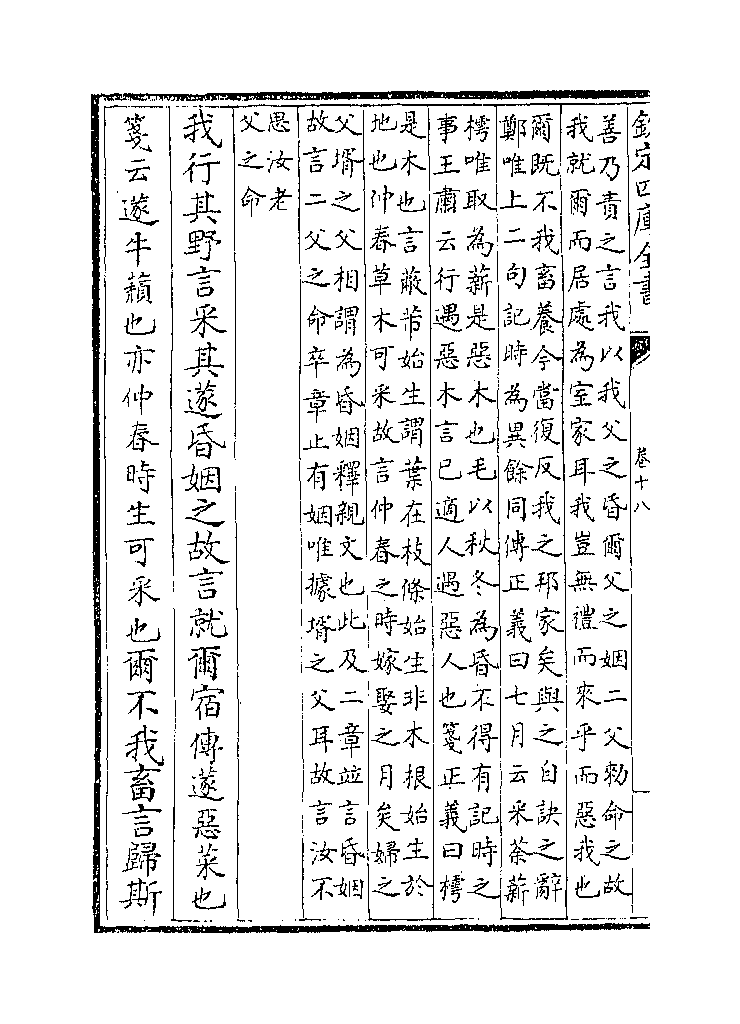 欽定四庫全書
卷十八
善乃責之言我以我父之昏爾父之姻二父勑命之故
我就爾而居處為室家耳我豈無禮而來乎而惡我也
爾既不我畜養今當復反我之邦家矣與之自訣之辭
鄭唯上二句記時為異餘同傳正義曰七月云采荼薪
樗唯取為薪是惡木也毛以秋冬為昏不得有記時之
事王肅云行遇惡木言已適人遇惡人也箋正義曰樗
是木也言蔽芾始生謂葉在枝條始生非木根始生於
地也仲春草木可采故言仲春之時嫁娶之月矣婦之
父壻之父相謂為昏姻釋親文也此及二章竝言昏姻
故言二父之命卒章止有姻唯據壻之父耳故言汝不
思汝老
父之命
我行其野言采其蓫昏姻之故言就爾宿傳蓫惡菜也
箋云蓫牛蘈也亦仲春時生可采也爾不我畜言歸斯